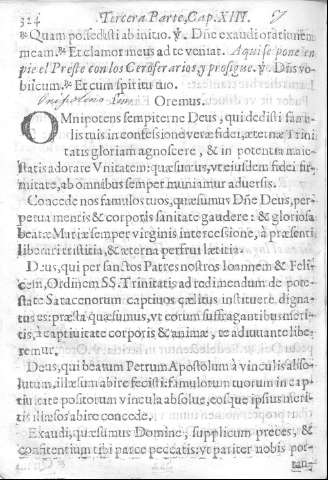 324 Tercera Parte, Cap. XIII. 57
℟. Quam possedisti ab initio. ℣. Dñe exaudi orationem
meam. ℟. Et clamor meus ad te veniat. Aqui se pone en
pie el Preste con los Ceroferarios, y prosigue. ℣. Dñs vo-
biscum. ℟. Et cum spiritu tuo.
Oremus.
OMnipotens sempiterne Deus, qui dedisti famu-
lis tuis in confessione veræ fidei, æternæ Trini-
tatis gloriam agnoscere, & in potentia maie-
statis adorare Vnitatem: quæsumus, vt eiusdem fidei fir-
mitate, ab omnibus semper muniamur adversis.
Concede nos famulos tuos, quæsumus Dñe Deus, per-
petua mentis & corporis sanitate gaudere: & gloriosa
beatæ Mariæ semper virginis intercessione, à præsenti
liberari tristitia, & æterna perfrui lætitia.
Deus, qui per sanctos Patres nostros Ioannem & Feli-
cem, Ordinem SS. Trinitatis ad redimendum de pote-
state Saracenorum captivos cælitus instituere dignatus
es: præsta quæsumus, vt eorum suffragantibus meri-
tis, à captivitate corporis & animæ, te adiuvante libe-
remur.
Deus, qui beatum Petrum Apostolum à vinculis abso-
lutum, illæsum abire fecisti: famulorum tuorum in cap-
tivitate positorum vincula absolue, eosque ipsius meri-
tis illæsos abire concede.
Exaudi, quæsumus Domine, supplicum preces, &
confitentium tibi parce peccatis: vt pariter nobis por-
tan-